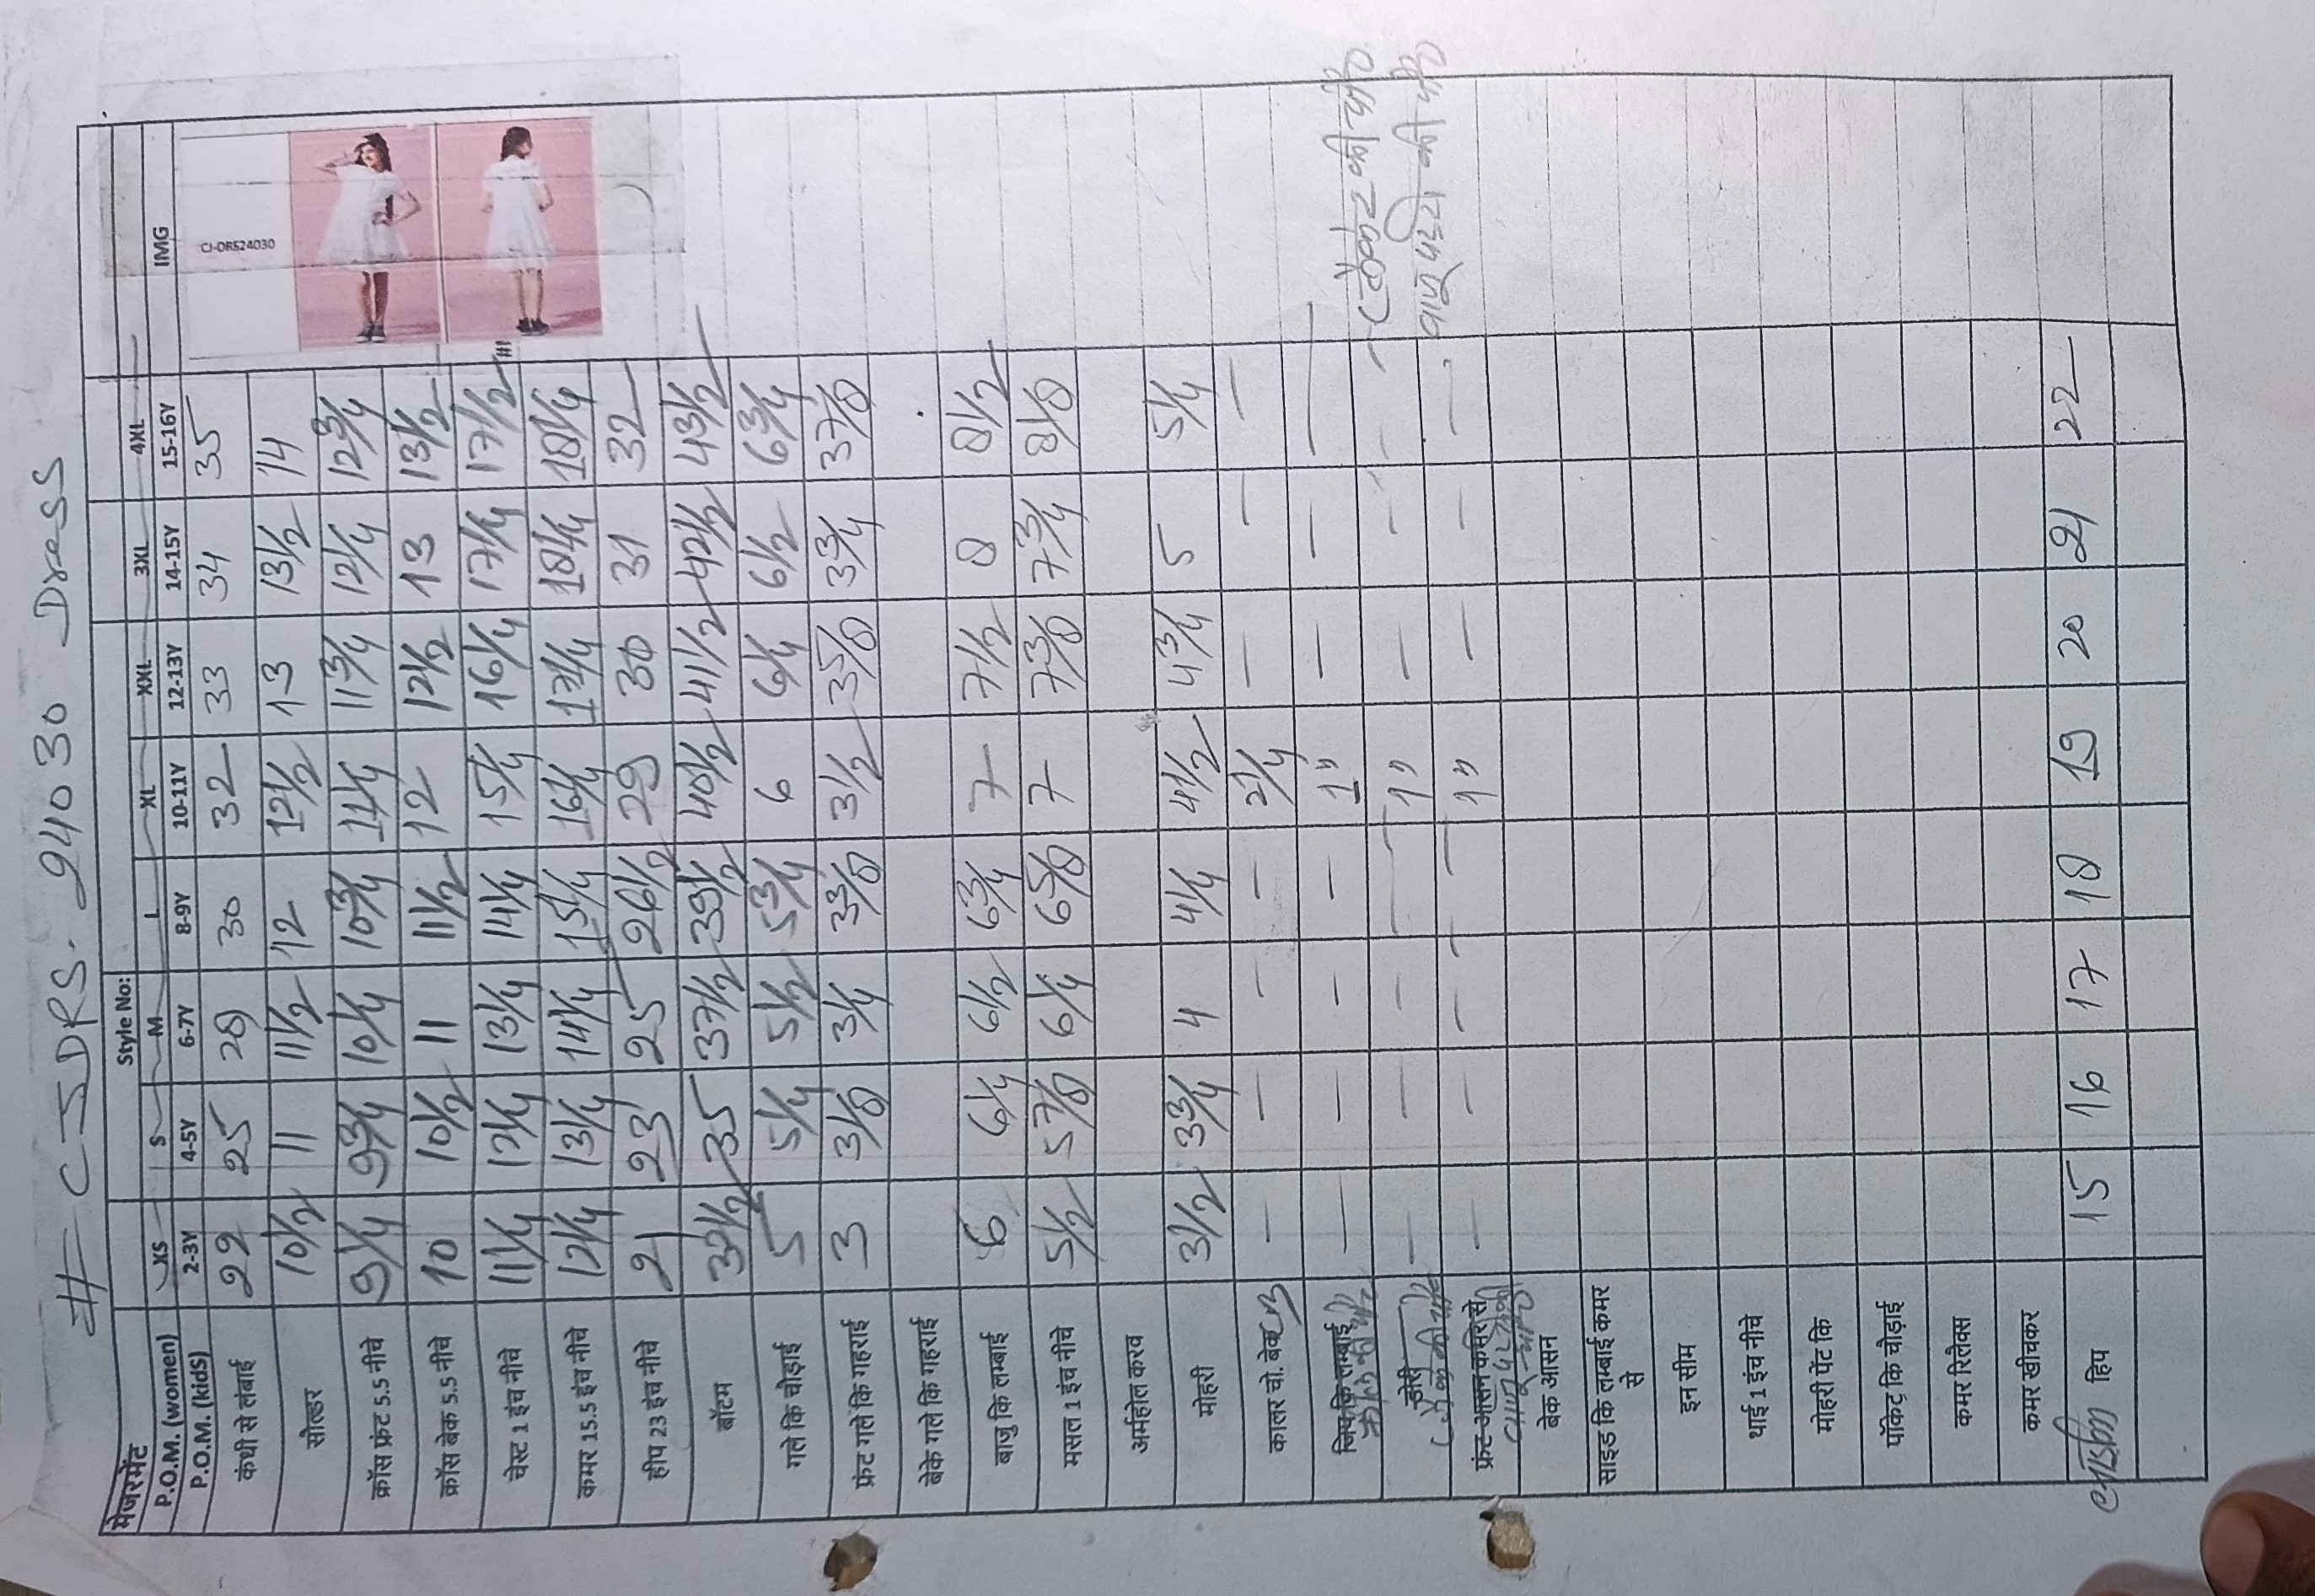 # CJDRS-24030 Dress
मेजरमेंट Style No:
P.O.M. (women) XS S M L XL XXL 3XL 4XL IMG
P.O.M. (kidS) 2-3Y 4-5Y 6-7Y 8-9Y 10-11Y 12-13Y 14-15Y 15-16Y
CJ-DRS24030
कंधी से लंबाई 22 25 28 30 32 33 34 35
सोल्डर 10 1/2 11 11 1/2 12 12 1/2 13 13 1/2 14
क्रॉस फ्रंट 5.5 नीचे 9 1/4 9 3/4 10 1/4 10 3/4 11 1/4 11 3/4 12 1/4 12 3/4
क्रॉस बेक 5.5 नीचे 10 10 1/2 11 11 1/2 12 12 1/2 13 13 1/2
चेस्ट 1 इंच नीचे 11 1/4 12 1/4 13 1/4 14 1/4 15 1/4 16 1/4 17 1/4 17 1/2
#1
कमर 15.5 इंच नीचे 12 1/4 13 1/4 14 1/4 15 1/4 16 1/4 17 1/4 18 1/4 18 1/4
हीप 23 इंच नीचे 21 23 25 26 1/2 29 30 31 32
बॉटम 32 1/2 35 37 1/2 39 1/2 40 1/2 41 1/2 42 1/2 43 1/2
गले कि चौड़ाई 5 5 1/4 5 1/2 5 3/4 6 6 1/4 6 1/2 6 3/4
फ्रंट गले कि गहराई 3 3 1/8 3 1/4 3 3/8 3 1/2 3 5/8 3 3/4 3 7/8
बेके गले कि गहराई
बाजु कि लम्बाई 6 6 1/4 6 1/2 6 3/4 7 7 1/2 8 8 1/2
मसल 1 इंच नीचे 5 1/2 5 7/8 6 1/4 6 5/8 7 7 3/8 7 3/4 8 1/8
अर्महोल करव
मोहरी 3 1/2 3 3/4 4 4 1/4 4 1/2 4 3/4 5 5 1/4
कालर चो. बेक — — — — 2 1/4 — — —
जिप कि लम्बाई — — — — 1" — — —
डोरी — — — — 1" — — —
फ्रंट आसन कमर से — — — — 1" — — —
बेक आसन
साइड कि लम्बाई कमर
से
इन सीम
थाई 1 इंच नीचे
मोहरी पेंट कि
पॉकेट् कि चौड़ाई
कमर रिलैक्स
कमर खीचकर
हिप 15 16 17 18 19 20 21 22